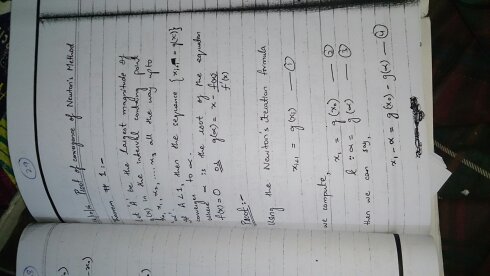 (29)
Proof of convergence of Newton's Method
Theorem # 1 :-
Let 'A' be the largest magnitude of
g'(x) in the interval containing point
x₀, x₁, x₂, ... x₃ all the way upto
'α'. If A<1, then the sequence {xᵢ₊₁ = g(xᵢ)}
converges to α.
where α is the root of the equation
f(x)=0 g(x) = x - f(x)/f'(x)
Proof :-
Using the Newton's iteration formula
xᵢ₊₁ = g(xᵢ) — ①
we compute,
x₁ = g(x₀) — ②
& ∵ α = g(α) — ③
then we can say,
x₁ - α = g(x₀) - g(α) — ④